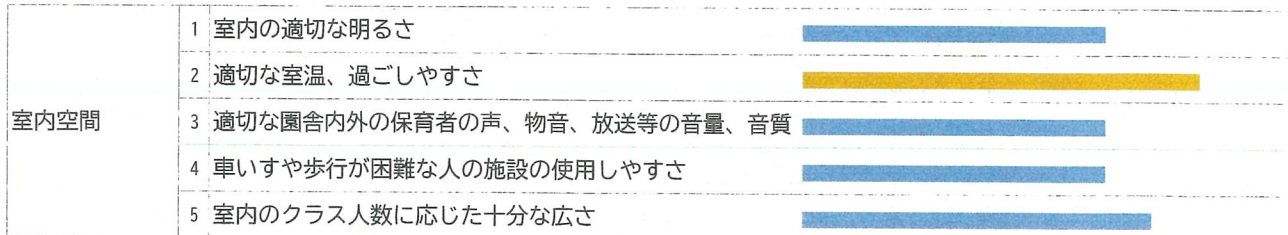 1 室内の適切な明るさ
2 適切な室温、過ごしやすさ
室内空間
3 適切な園舎内外の保育者の声、物音、放送等の音量、音質
4 車いすや歩行が困難な人の施設の使用しやすさ
5 室内のクラス人数に応じた十分な広さ